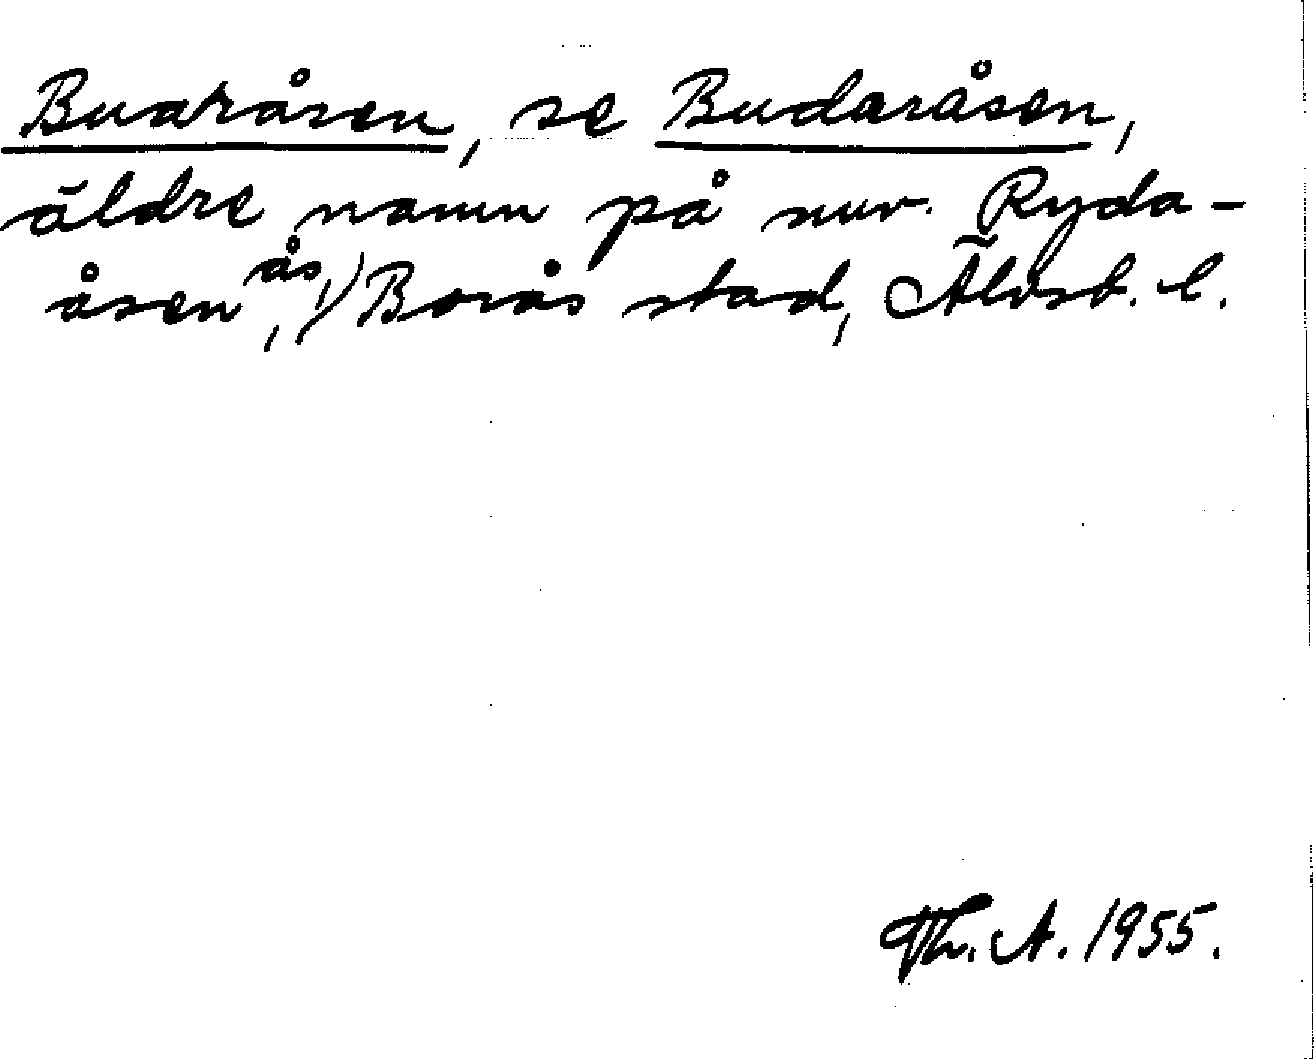 Buaråsen, se Budaråsen,
äldre namn på nuv. Ryda-
åsen, ås, i) Borås stad, Älvsb. l.
Th. A. 1955.